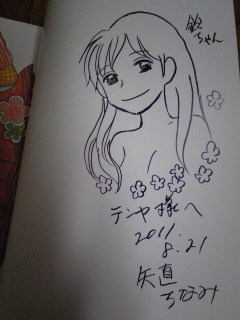 鈴
ちゃん
テンヤ様へ
2011
8.21
矢直
ちなみ